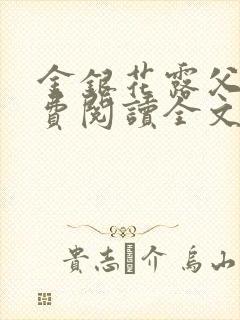 金銀花露父
費閱讀全文
貴志介 烏山